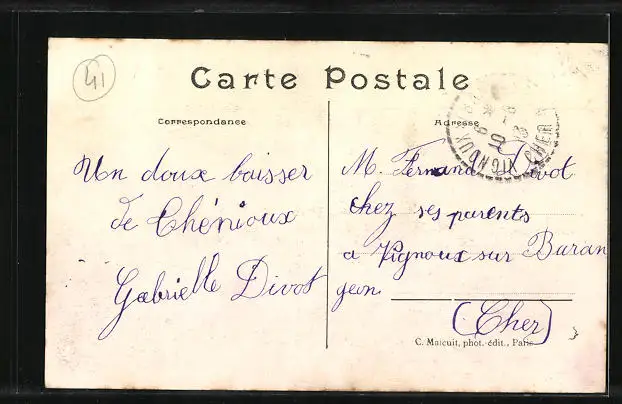 41
Carte Postale
Correspondance
Adresse
VIGNOUX CHER
Un doux baisser
de Chénioux
Gabrielle Divot
M. Fernand Divot
chez ses parents
a Vignoux sur Baran
geon
(Cher)
C. Maicuit, phot.-édit., Paris